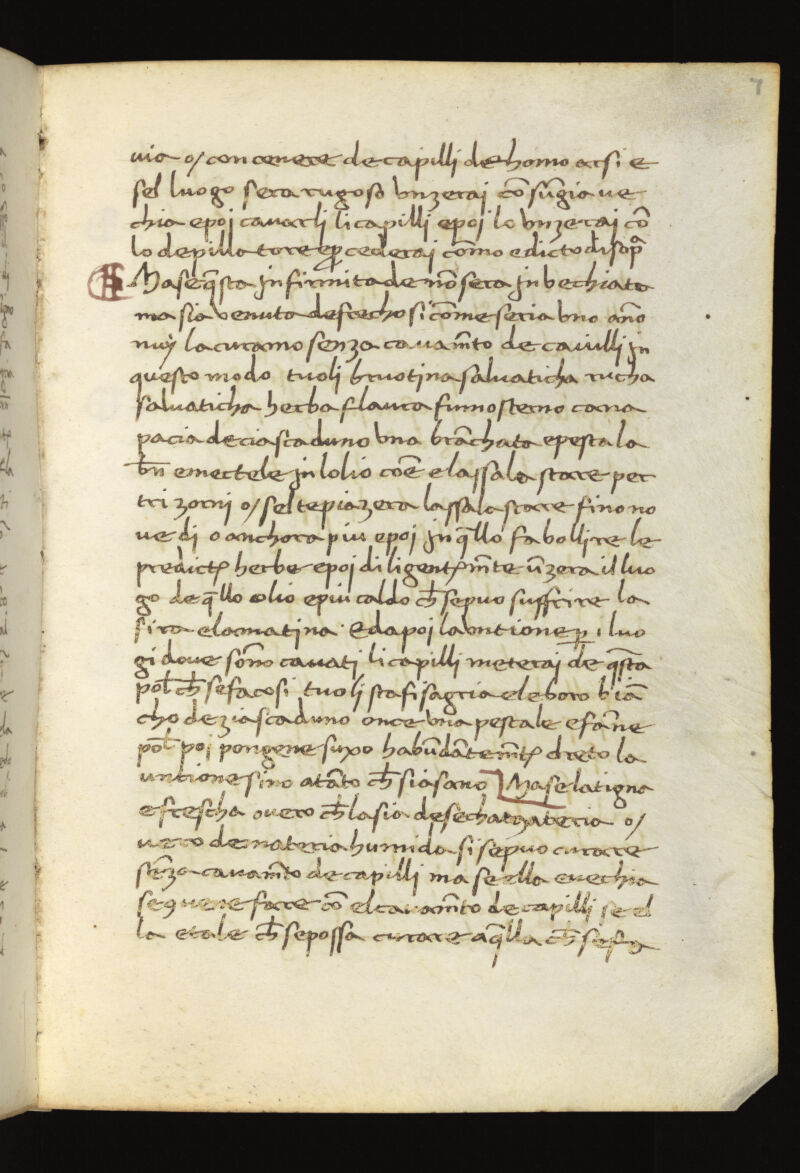 7
via o/ con cenere de capilli de homo arsi e
sel luogo sera rugoso unzerai cō sūgia ve
chia e poi cavarli li capilli e poi lo unzerai cō
lo depillatore e ꝓcederai cōmo e dicto di sop̄
Ma se q̄sta infirmitade nō sera invechiata
ma sia venuta de frecho si cōme seria uno año
nuy la curamo senza cavam̄to de cavilli in
questo modo tuoli bruotina salvaticha rucha
salvaticha herba flaura fumosterno cana
pacia de ciascaduno una brāchata e pestala
bn̄ e mectele in lolio cōe e lassala stare per
tri zorni o/ sel te piazera lassala stare fino no
ve di o anchora piu e poi in q̄llo fa bollire le
predictꝭ herbe e poi diligentꝭm̄te ūzera il luo
go de q̄llo olio e piu caldo ch̄ se puo suffrire la
sira e la matina · E dapoi la untione ꝑ i luo
gi dove sōno cavati li capilli meterai de q̄sta
pol̄ ch̄ se fa cosi tuoli stafisagria eleboro biā
cho de ziascaduno once una pestale e fane
pol̄ poi pongene suxo habūdātem̄tꝭ dreto la
untione sino atāto ch̄ sia sano Ma se la tigna
e frescha overo ch̄ la sia de secha materia o/
vero de materia humida si se puo curare
sēza cavam̄to de capilli ma se ella e vechia
se 9vene fare cō el cavam̄to de capilli se el
la e tale ch̄ se possa curare a q̄lla ch̄ se fa